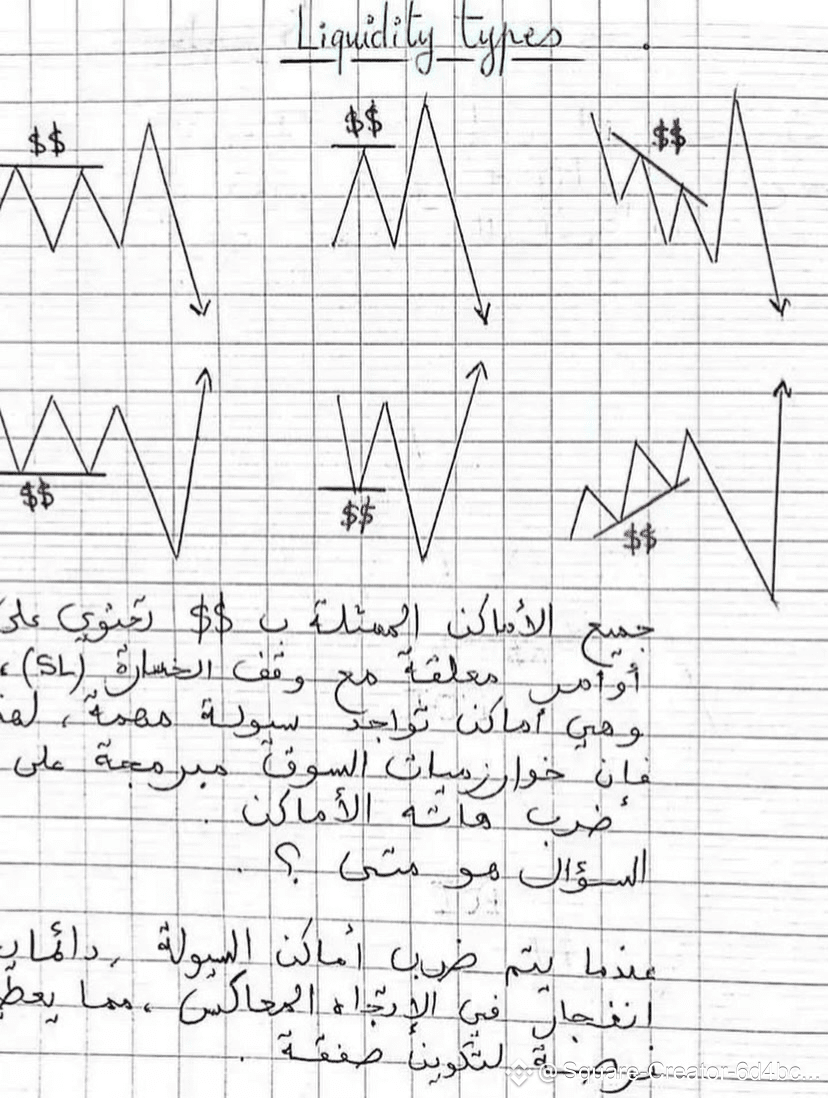 Liquidity types .
$$ $$ $$
$$ $$ $$
جميع الأماكن الممثلة ب $$ تحتوي على
أوامر معلقة مع وقف الخسارة (SL)،
وهي أماكن تواجد سيولة مهمة،
فان خوارزميات السوق مبرمجة على
ضرب هاته الأماكن .
السؤال هو متى ؟ .
عندما يتم ضرب أماكن السيولة ،
انفجار في الإتجاه المعاكس ، مما
فرصة لتكوين صفقة .
@Square-Creator-6d4bc...